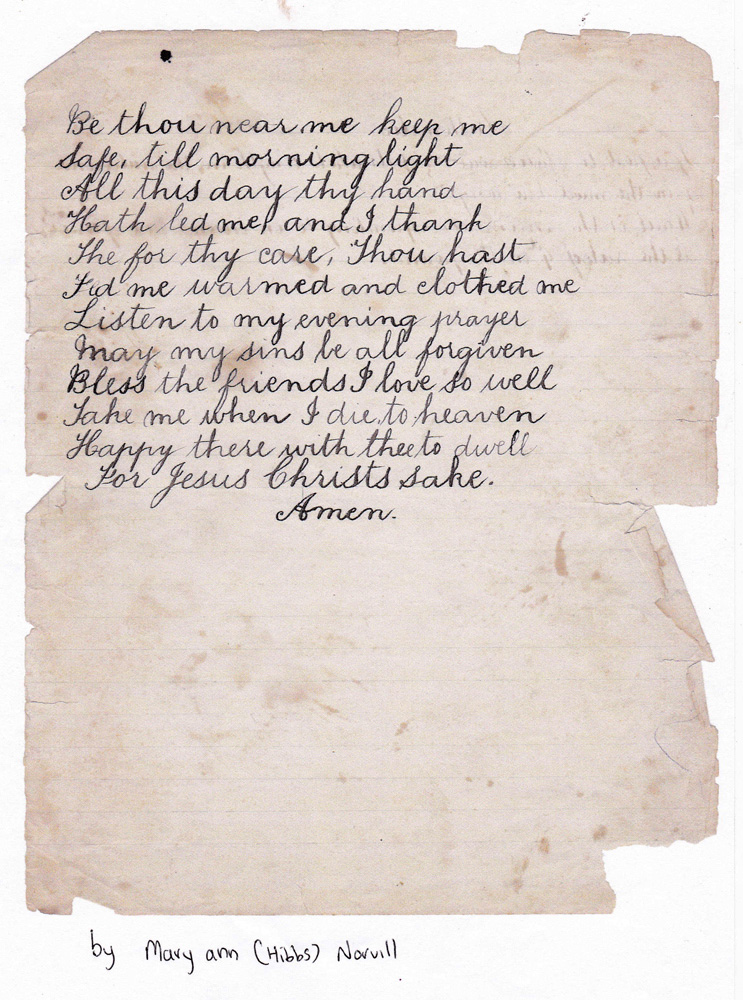 Be thou near me keep me
Safe, till morning light
All this day thy hand
Hath led me, and I thank
The for thy care, Thou hast
Fed me warmed and clothed me
Listen to my evening prayer
May my sins be all forgiven
Bless the friends I love so well
Take me when I die, to heaven
Happy there with thee to dwell
For Jesus Christs sake.
Amen.
by Mary ann (Hibbs) Norvill